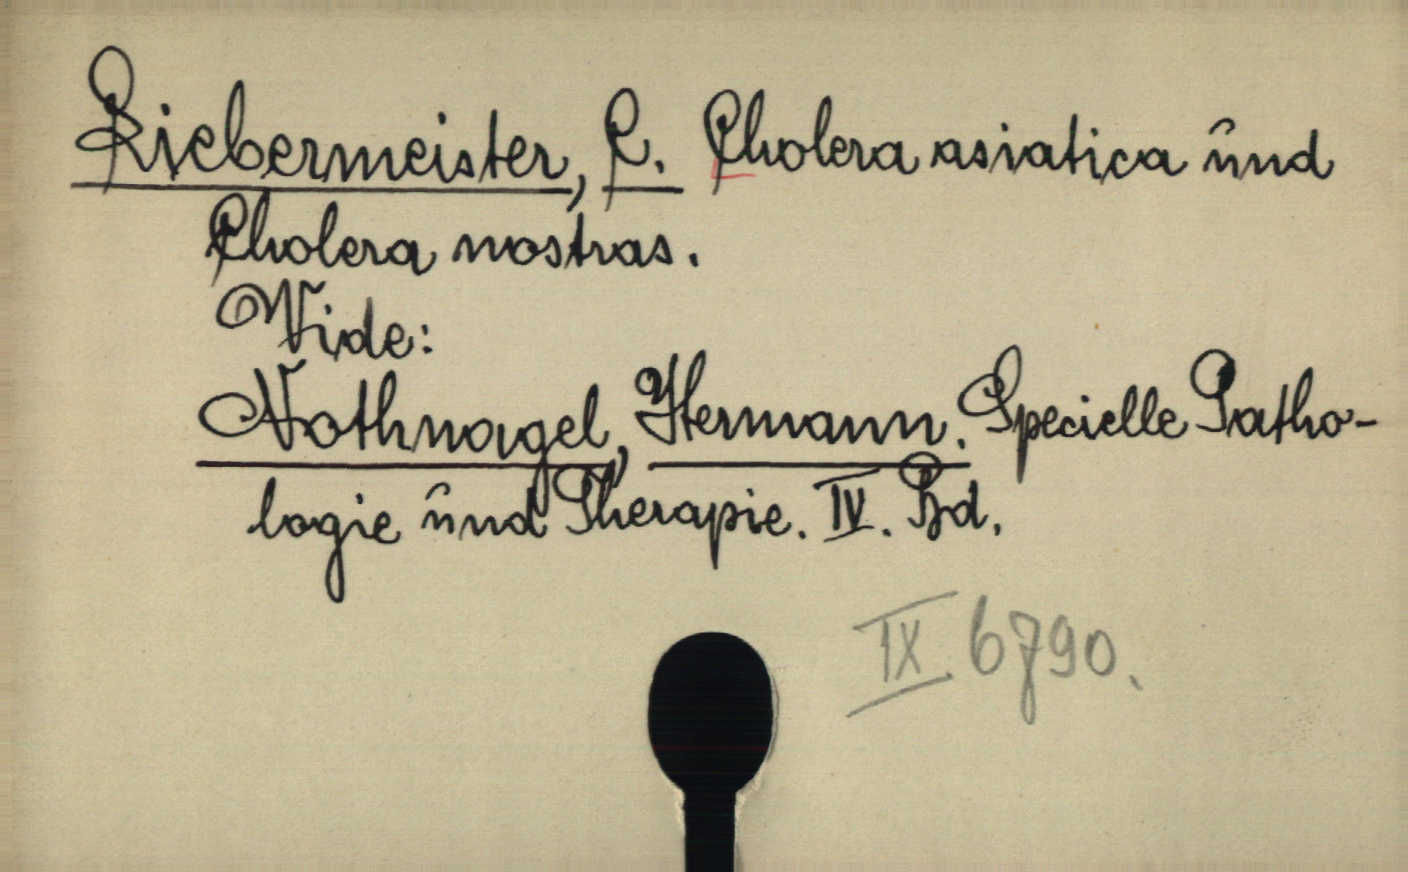 Liebermeister, C. Cholera asiatica und
Cholera nostras.
Vide:
Nothnagel, Hermann. Specielle Patho-
logie und Therapie. IV. Bd.
IX. 6790.